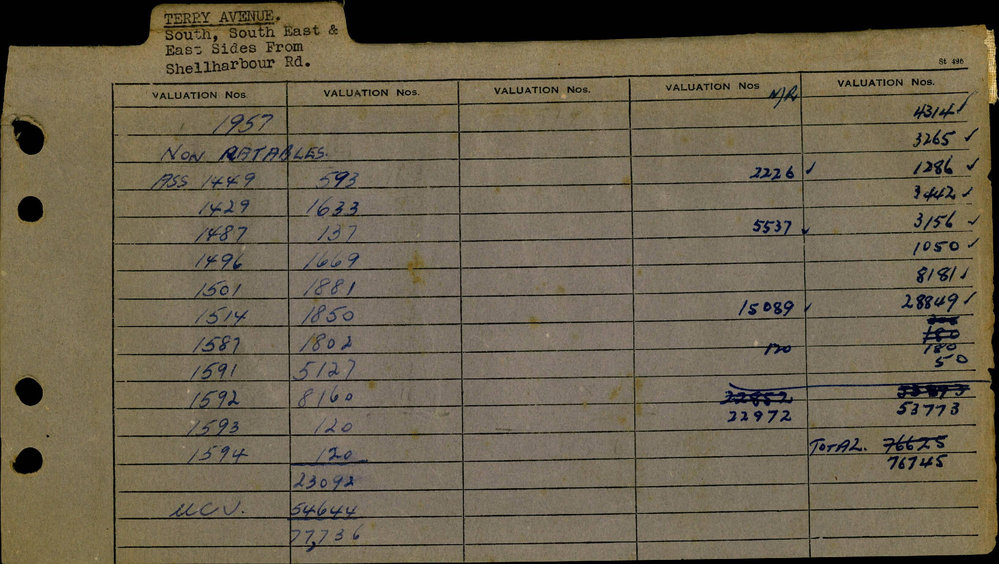 TERRY AVENUE.
South, South East &
East Sides From
Shellharbour Rd.
St 496
VALUATION Nos. VALUATION Nos. VALUATION Nos. VALUATION Nos VALUATION Nos.
N/R
1957 4314 ✓
NON RATABLES. 3265 ✓
ASS 1449 593 2226 ✓ 1286 ✓
1429 1633 3442 ✓
1487 137 5537 ✓ 3156 ✓
1496 1669 1050 ✓
1501 1881 8181 ✓
1514 1850 15089 ✓ 28849 ✓
180
1587 1802 120 180
1591 5127 50
1592 8160 22852
22972 53773
1593 120
1594 120 TOTAL. 76625
76745
23092
U.C.V. 54644
77,736